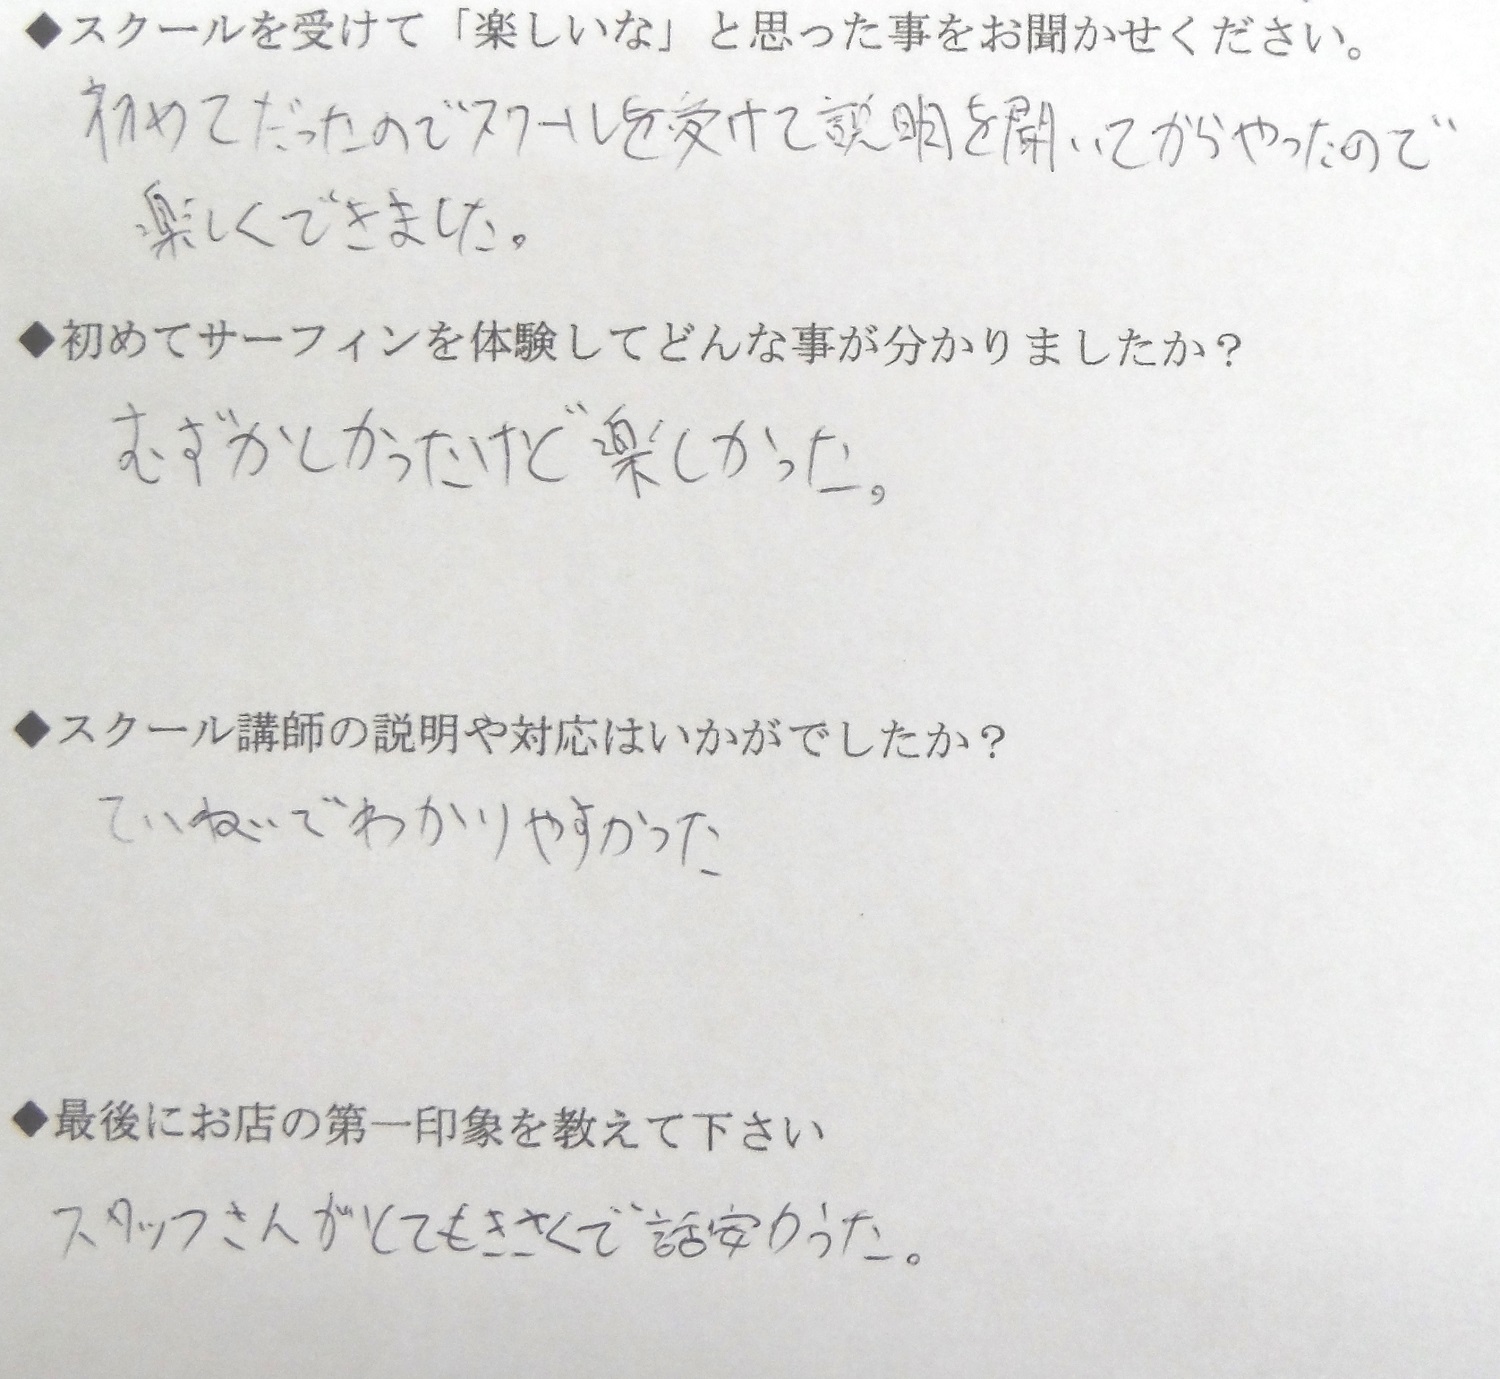 ◆スクールを受けて「楽しいな」と思った事をお聞かせください。
初めてだったのでスクールを受けて説明を聞いてからやったので
楽しくできました。
◆初めてサーフィンを体験してどんな事が分かりましたか?
むずかしかったけど楽しかった。
◆スクール講師の説明や対応はいかがでしたか?
ていねいでわかりやすかった
◆最後にお店の第一印象を教えて下さい
スタッフさんがとてもきさくで話安かった。